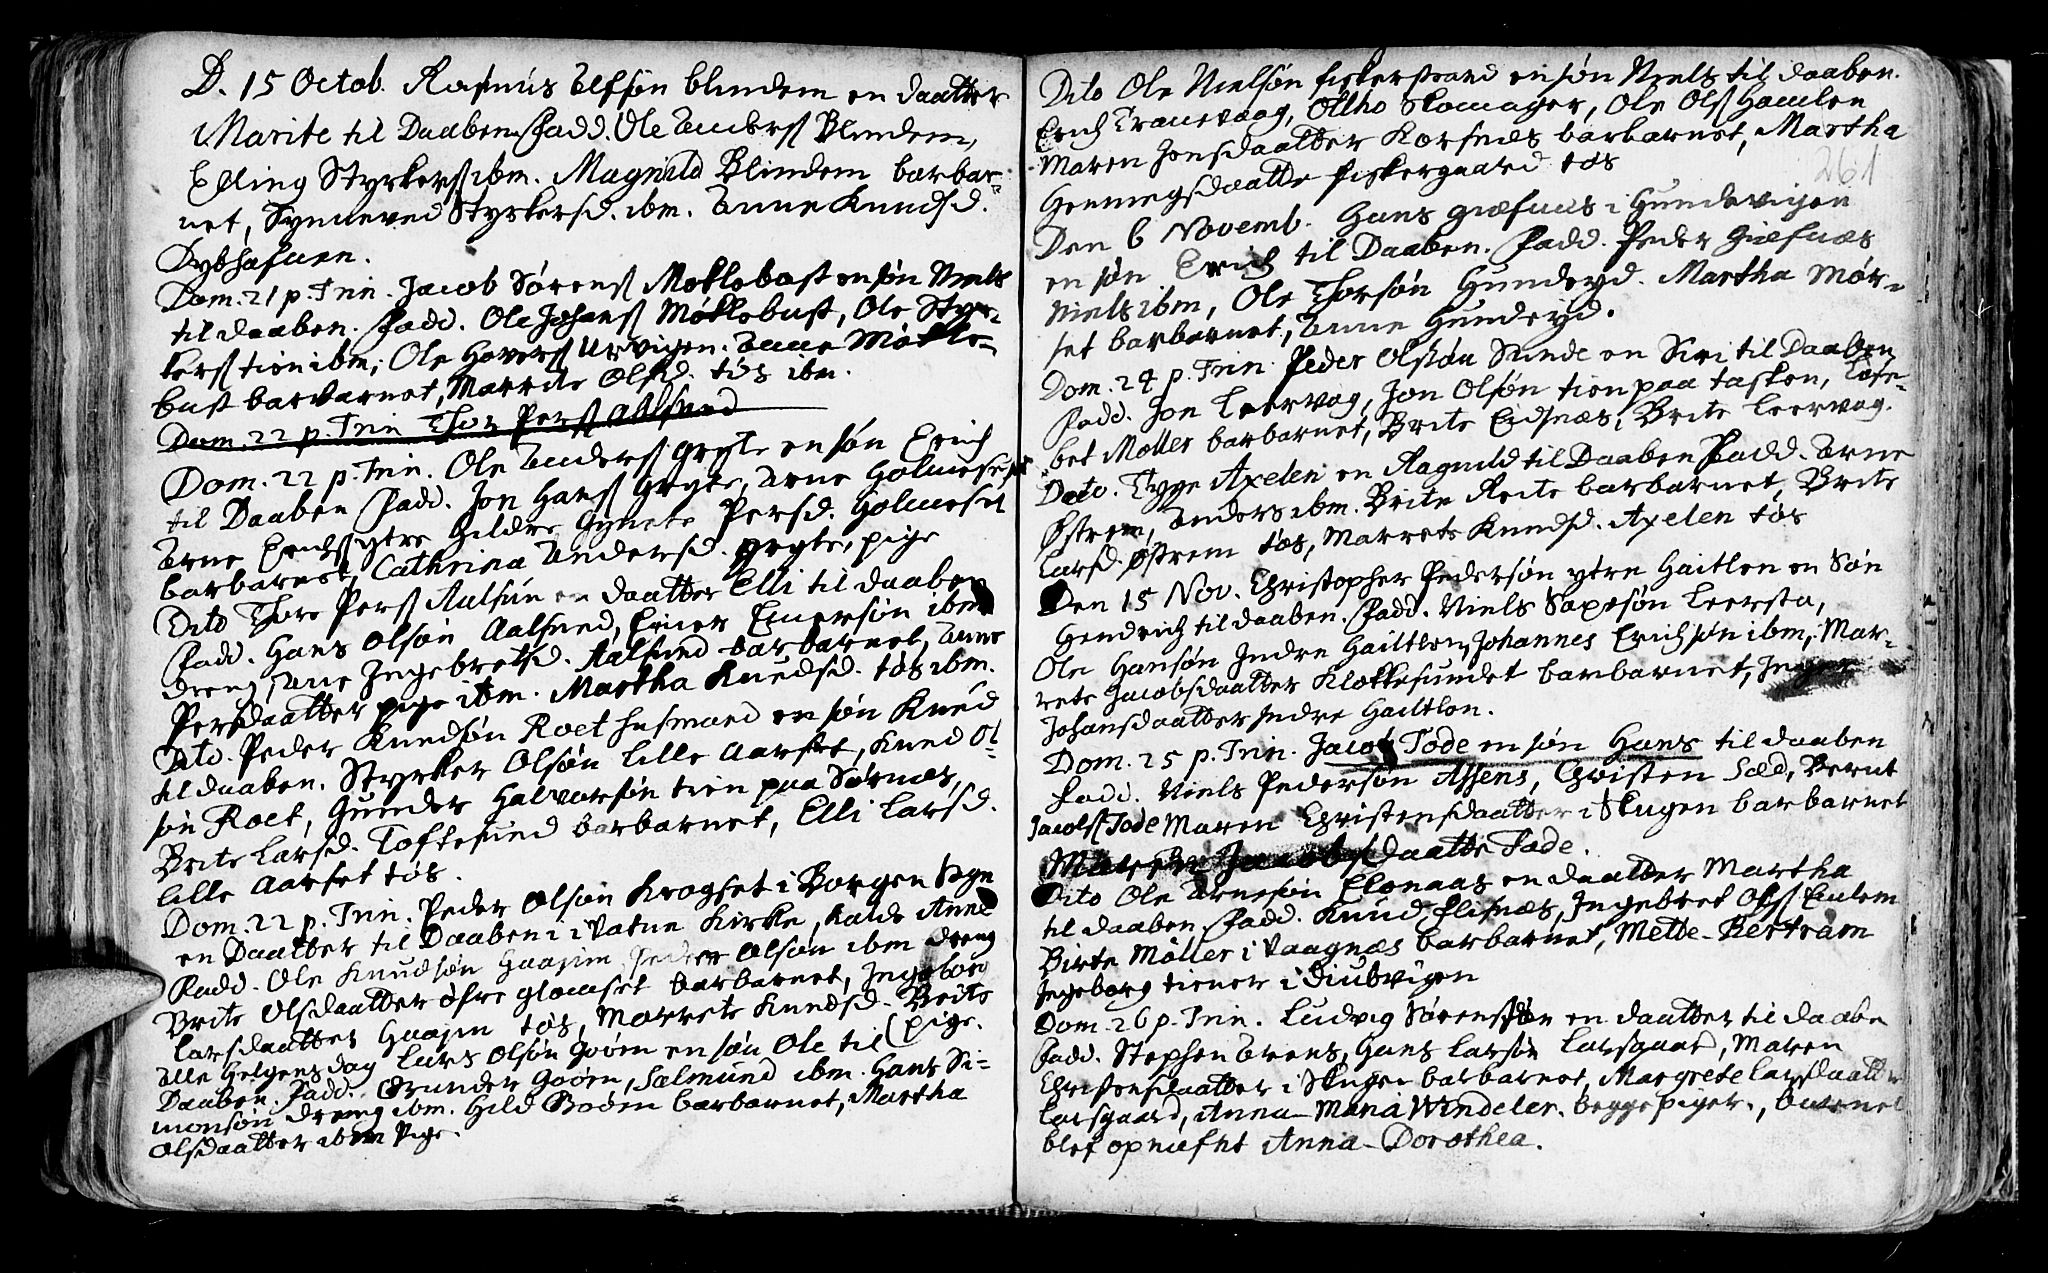 D. 15 Octob. Rasmus Elfsøn blindem en daatter
Marite til Daaben. Fadd. Ole Anderss Blindem,
Elling Styrkerss ibm. Magnild Blindem barbar-
net, Synneved Styrkersd. ibm. Anne Knudsd.
Dybhafnen.
Dom. 21 p. Trin. Jacob Sørenss Møklebost en søn Niels
til daaben. Fadd. Ole Johanss Møklebust, Ole Styr-
kerss tien ibm; Ole Haverss Urvigen. Anne Møkle-
bust barbarnet, Marrite Olsd. tøs ibm.
Dom. 22 p. Trin Thor Perss Aalsund
Dom. 22 p. Trin. Ole Anderss Gryte en søn Erich
til Daaben Fadd. Jon Hanss Gryte, Arne Holmeset
Arne Erichss ytre Gildre Gynete Persd. Holmeset
barbarnet, Cathrina Andersd. gryte, pige
Dito Thore Perss Aalsun en daatter Elli til daaben
Fadd. Hans Olsøn Aalsund, Einer Einersøn ibm
dreng, Ane Ingebretsd. Aalsund barbarnet, Anne
Persdaatter pige ibm. Martha Knudsd. tøs ibm.
Dito. Peder Knudsøn Roet husmand en søn Knud
til daaben. Styrker Olsøn lille Aarset, Knud Ol-
søn Roet, Gunder Halvorsøn tien paa Sørnæs,
Brite Larsd. Toftesund barbarnet, Elli Larsd.
lille Aarset tøs.
Dom. 22 p. Trin. Peder Olsøn Krogset i Borgen Sogn
en Daatter til Daaben i i Vatne Kirke, kalde Anne
Fadd. Ole Knudsøn Haajim Peder Olsøn ibm dreng
Brite Olsdaatter øfre glomset barbarnet, Ingebor
Larsdaatter Haajim tøs, Marrete Knudsd. Brite
Alle Helgens dag Lars Olsøn Goøen en søn Ole til (pige.
Daaben. Fadd. Gunder Goøen, Salmund ibm. Hans Si-
monsøn dreng ibm. Hild Boøen barbarnet, Martha
Olsdaatter ibm Pige.
Dito Ole Nielsøn fiskerstrand en søn Niels til daaben.
Erich Tranevaag, Ottho Skomager, Ole Olss Hamlen
Maren Jonsdaatter Korsnæs barbarnet, Martha
Henningsdaatte fiskergaard tøs
261
Den 6 Novemb. Hans græfnæs i Hundevigen
en søn Erich til Daaben. Fadd. Peder Græfnæs
Niels ibm, Ole Thorsøn Hundeyd. Martha Mør-
set barbarnet, Anne Hundeyd.
Dom. 24 p. Trin. Peder Olsøn Sunde en Siri til Daaben
Fadd. Jon Leervag, Jon Olsøn tien paa tasken, Lise-
bet Møller barbarnet, Brite Eidsnæs, Brite Leervag.
Dito. Tyge Axelen en Ragnild til Daaben Fadd. Arne
Østrem, Anders ibm. Brite Reite barbarnet, Brite
Larsd. Østrem tøs, Marrete Knudsd. Axelen tøs
Den 15 Nov. Christopher Pedersøn ytre Haitlen en Søn
Hendrich til daaben. Fadd. Niels Saxesøn Leersta,
Ole Hansøn Indre Haitlen, Johannes Erichsøn ibm, Mar-
rete Jacobsdaatter Klokkesundet barbarnet, Inger
Johansdaatter Indre Haitlen.
Dom. 25 p. Trin. Jacob Tode en søn Hans til daaben
Fadd. Niels Pedersøn Assens, Christen Sæd, Bernt
Jacobss Tode Maren Christensdaatter i Skugen barbarnet
Maren Jacobsdaatte Tode.
Dito Ole Arnesøn Elonaas en daatter Martha
til daaben. Fadd. Knud Flisnæs, Ingebret Olss Eulem
Birte Møller i Vaagnæs barbarnet, Mette Bertram
Ingeborg tiener i Diubvigen
Dom. 26 p. Trin. Ludvig Sørensøn en daatter til daabe
Fadd. Stephen Arens, Hans Larsøn Larsgaard, Maren
Christensdaatter i Skugen barbarnet, Margrete Larsdaatter
Larsgaard, Anna Maria Windeler. begge piger., barnet
blef opnæfnt Anna Dorothea.